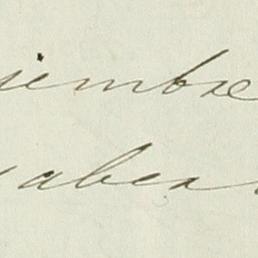 iembre
abea